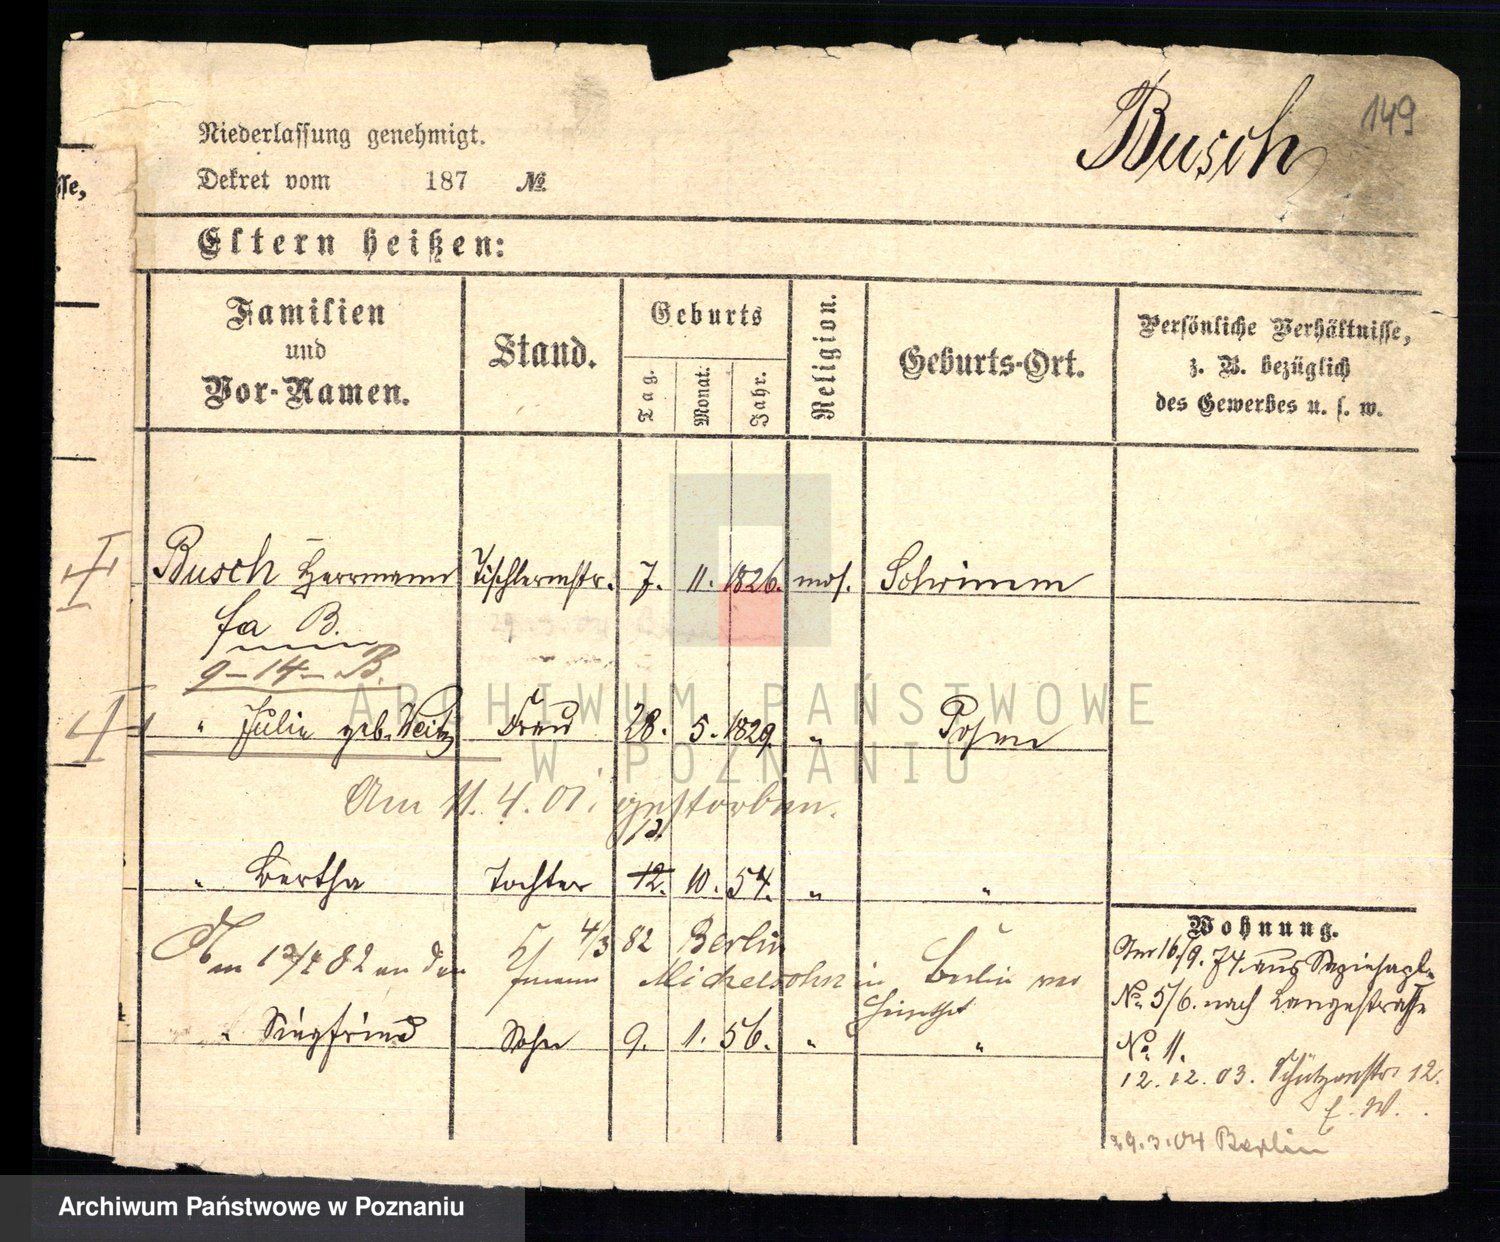 Busch
149
Niederlassung genehmigt.
Dekret vom 187 №
sse,
Eltern heißen:
Familien und Vor-Namen.
Stand.
Geburts
Tag.
Monat.
Jahr.
Religion.
Geburts-Ort.
Persönliche Verhältnisse, z. B. bezüglich des Gewerbes u. s. w.
Busch Herrmann Tischlermstr. 7. 11. 1826. mos. Schrimm
fa B.
9-14-B.
" Julie geb. Weitz Frau 28. 5. 1829. " Posen
Am 11. 4. 01. gestorben.
12.
" Bertha Tochter 12. 10. 54. " "
Wohnung.
Am 82 an den 4/3 82 Berlin
Michelsohn in Berlin ver
Am 16/9. 74. aus
No 5/6. nach Langestraße
" Siegfried Sohn 9. 1. 56. " "
No 11.
12. 12. 03. Schützenstr 12.
E. W.
29.3.04 Berlin
ARCHIWUM PAŃSTWOWE
W POZNANIU
Archiwum Państwowe w Poznaniu